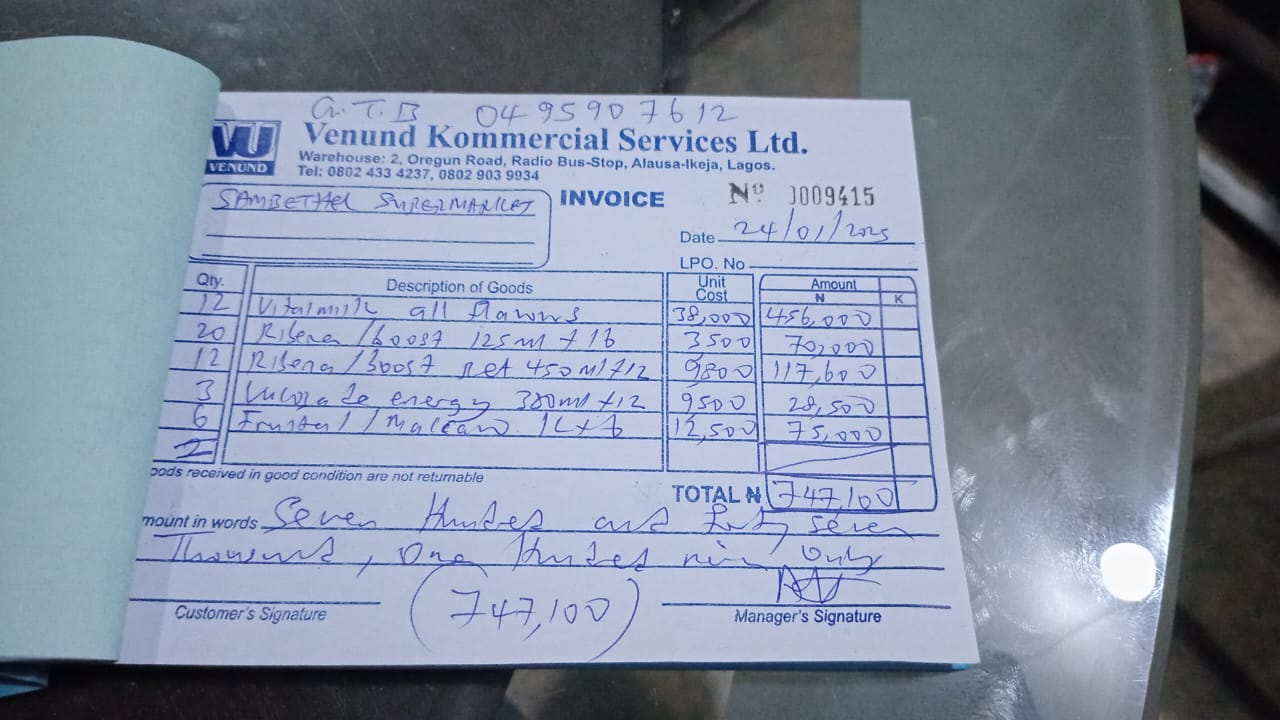 G.T.B 0495907612
VU
VENUND
Venund Kommercial Services Ltd.
Warehouse: 2, Oregun Road, Radio Bus-Stop, Alausa-Ikeja, Lagos.
Tel: 0802 433 4237, 0802 903 9934
SAMBETHEL SUPERMARKET
INVOICE
Nº 0009415
Date 24/01/2025
LPO. No
Qty. Description of Goods Unit Cost Amount
N K
12 Vitalmilk all flavours 38,000 456,000
20 Ribena/boost 125ml x 16 3500 70,000
12 Ribena/boost pet 450ml x 12 9800 117,600
3 Lucozade energy 380ml x 12 9500 28,500
6 1L x 6 12,500 75,000
oods received in good condition are not returnable
TOTAL ₦ 747,100
mount in words Seven Hundred and forty seven
Thousand, One Hundred only
Customer's Signature
(747,100)
Manager's Signature